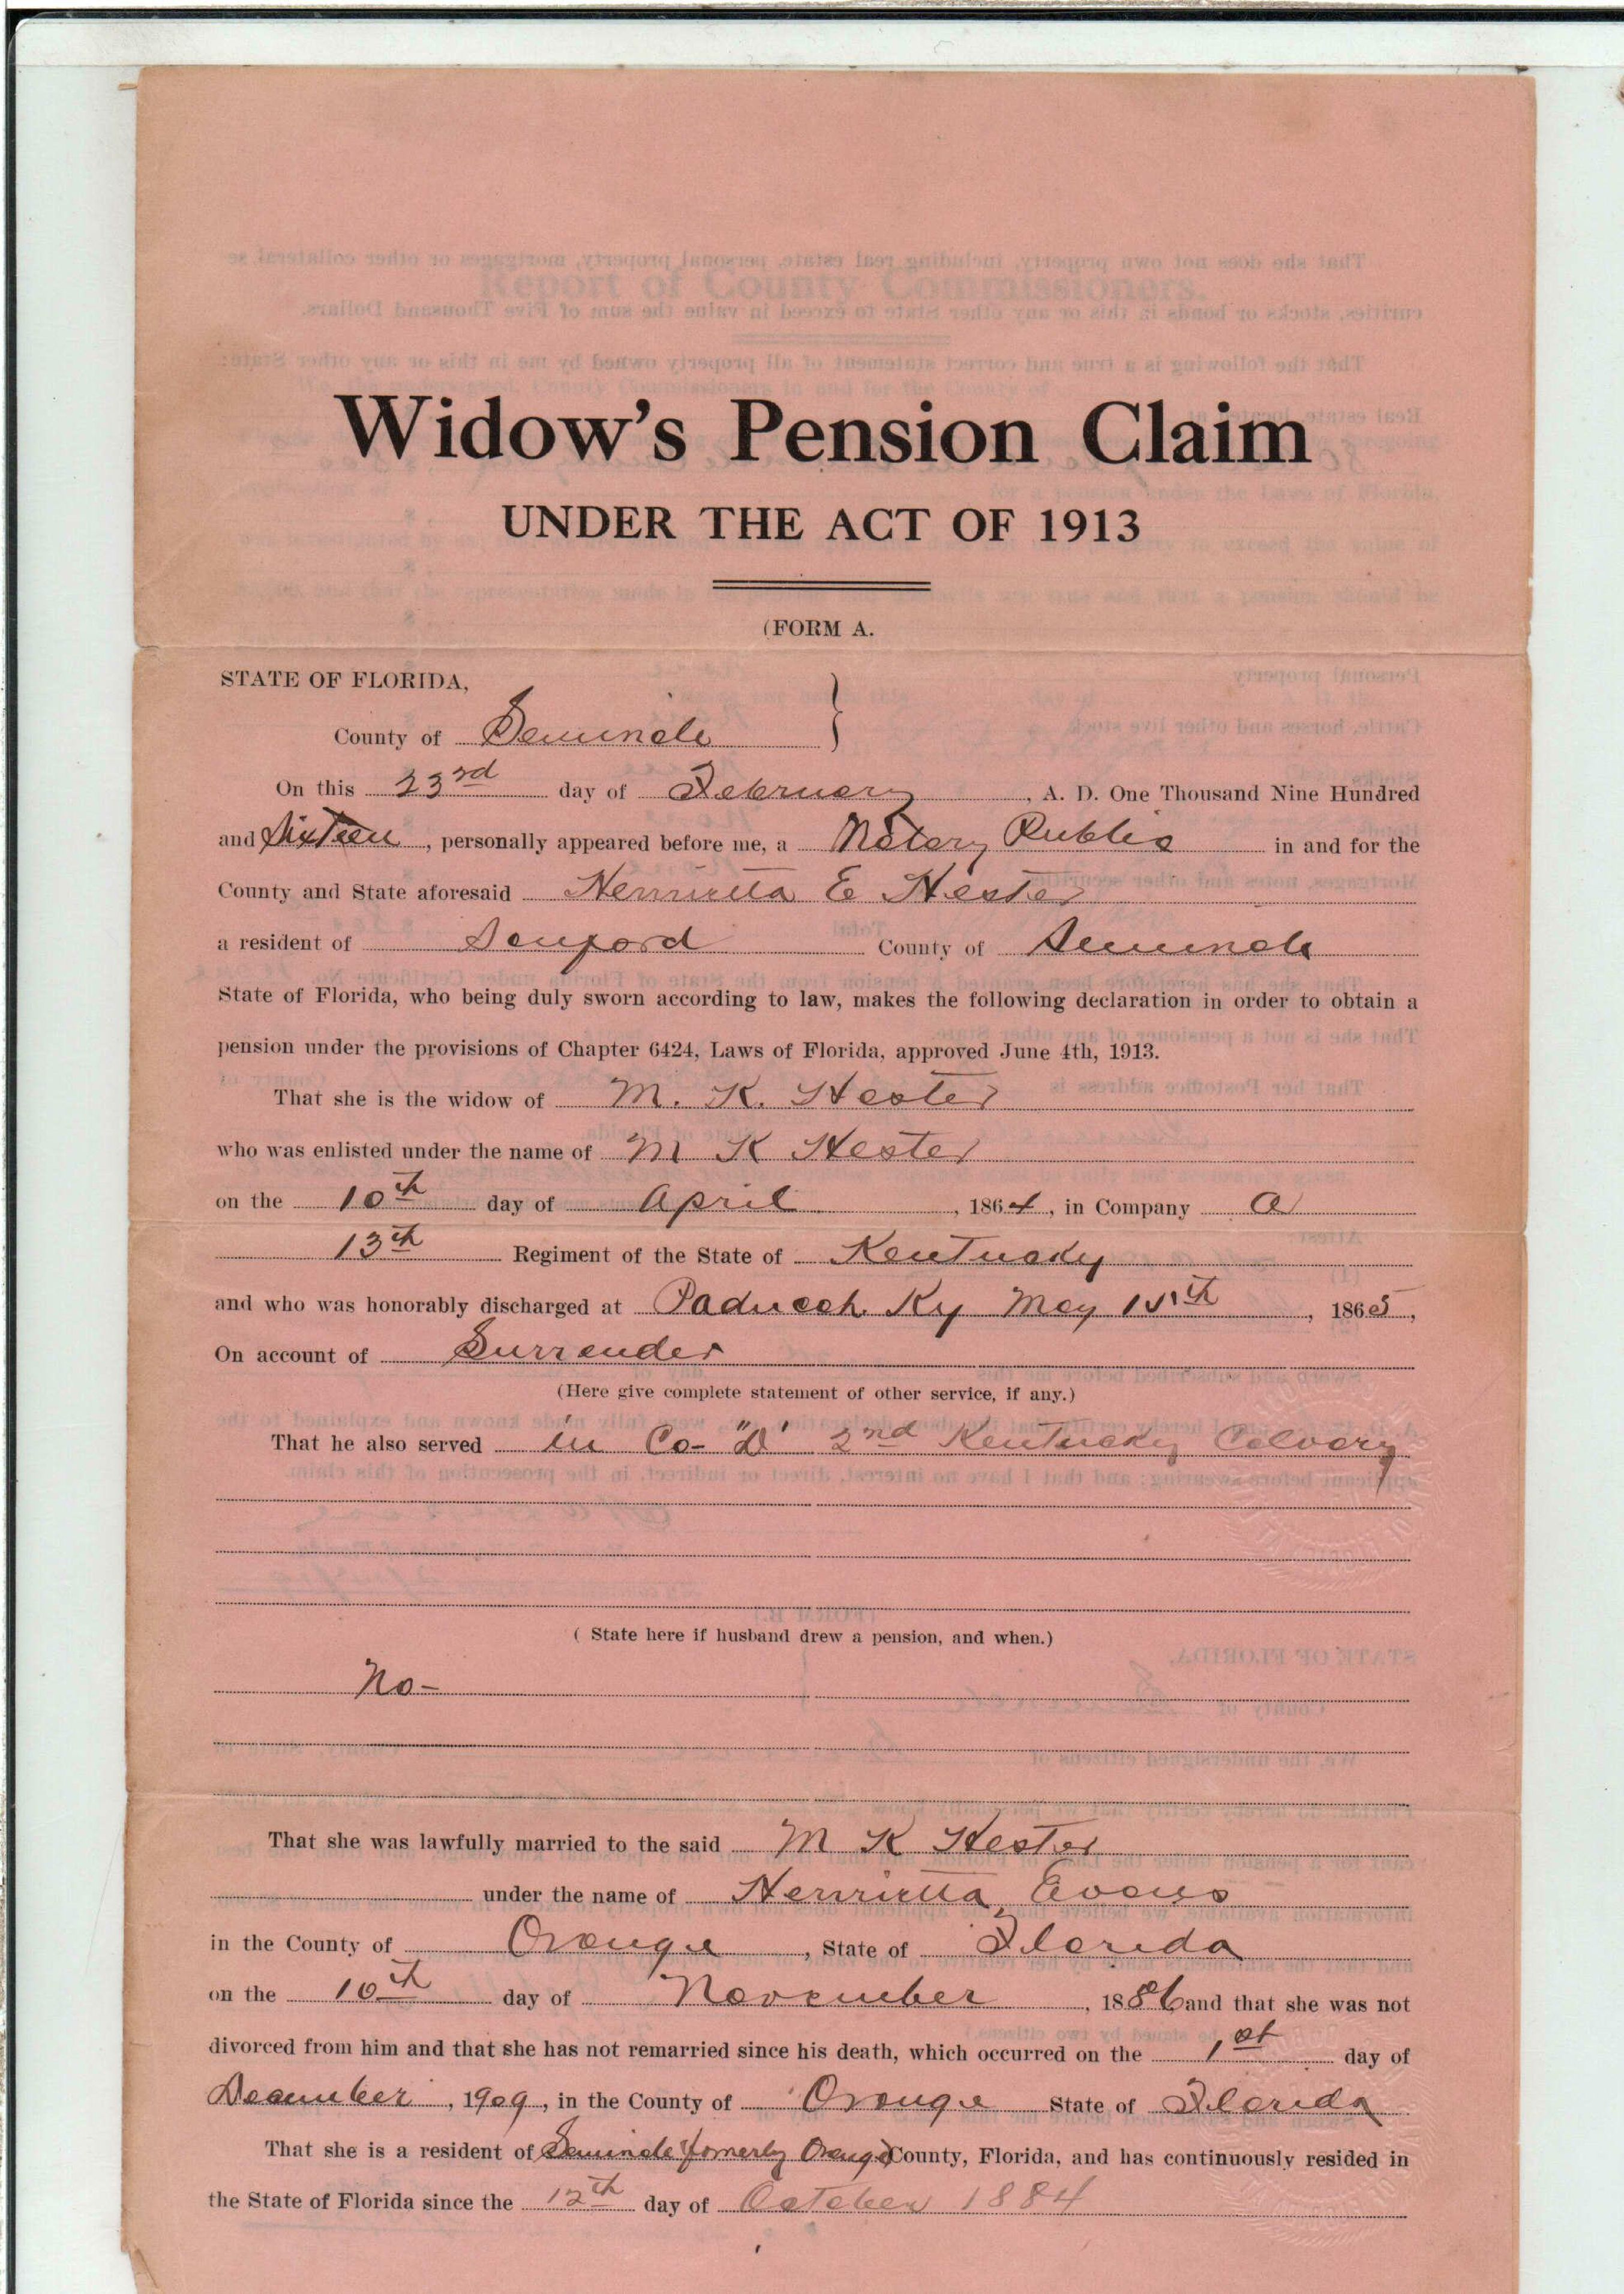 Widow's Pension Claim
UNDER THE ACT OF 1913
(FORM A.
STATE OF FLORIDA,
County of Seminole
On this 23rd day of February, A. D. One Thousand Nine Hundred
and Sixteen, personally appeared before me, a Notary Public in and for the
County and State aforesaid Henrietta E Hester
a resident of Sanford County of Seminole
State of Florida, who being duly sworn according to law, makes the following declaration in order to obtain a
pension under the provisions of Chapter 6424, Laws of Florida, approved June 4th, 1913.
That she is the widow of M. K. Hester
who was enlisted under the name of M K Hester
on the 10th day of April, 1864, in Company A
13th Regiment of the State of Kentucky
and who was honorably discharged at Paducah Ky May 15th, 1865,
On account of Surrender
(Here give complete statement of other service, if any.)
That he also served in Co- "D" 2nd Kentucky Calvary
( State here if husband drew a pension, and when.)
No-
That she was lawfully married to the said M K Hester
under the name of Henrietta Evans
in the County of Orange, State of Florida
on the 10th day of November, 1886 and that she was not
divorced from him and that she has not remarried since his death, which occurred on the 1st day of
December, 1909, in the County of Orange State of Florida
That she is a resident of Seminole (fomerly Orange) County, Florida, and has continuously resided in
the State of Florida since the 12th day of October 1884